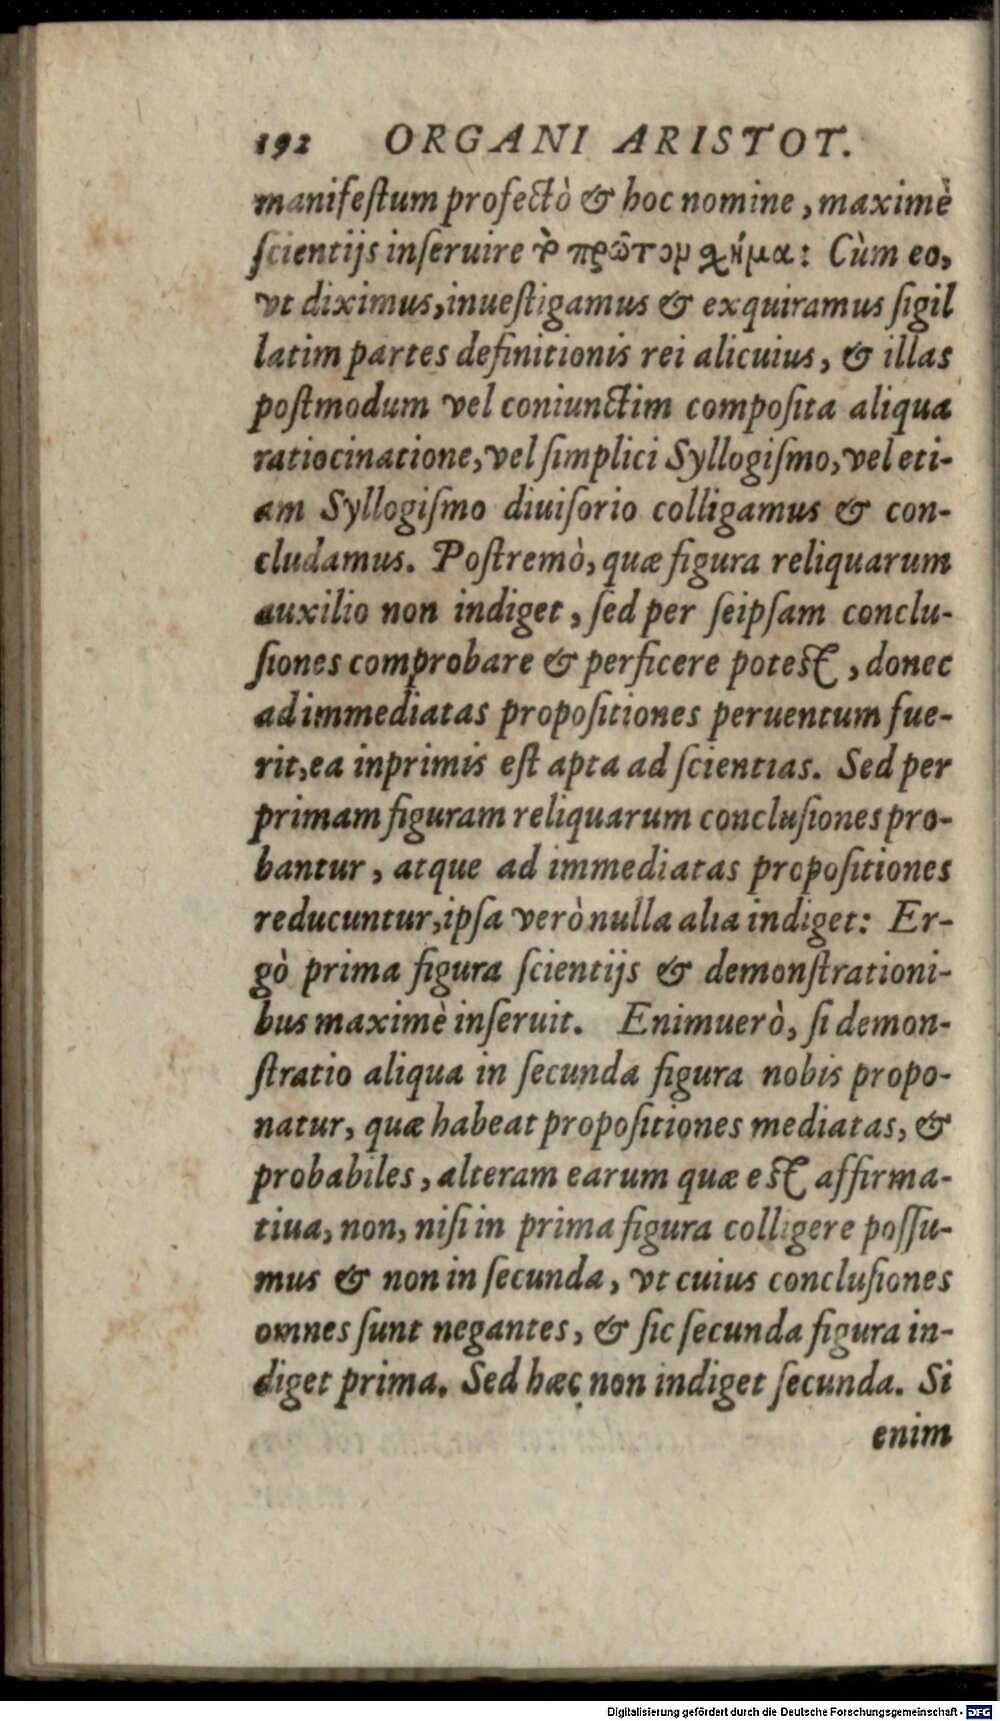 192 ORGANI ARISTOT.
manifeſtum profectò & hoc nomine, maximè
ſcientijs inſeruire τὸ πρῶτον σχῆμα: Cùm eo,
vt diximus, inueſtigamus & exquiramus ſigil
latim partes definitionis rei alicuius, & illas
poſtmodum vel coniunctim compoſita aliqua
ratiocinatione, vel ſimplici Syllogiſmo, vel eti-
am Syllogiſmo diuiſorio colligamus & con-
cludamus. Poſtremò, quæ figura reliquarum
auxilio non indiget, ſed per ſeipſam conclu-
ſiones comprobare & perficere poteſt, donec
ad immediatas propoſitiones peruentum fue-
rit, ea inprimis eſt apta ad ſcientias. Sed per
primam figuram reliquarum concluſiones pro-
bantur, atque ad immediatas propoſitiones
reducuntur, ipſa verò nulla alia indiget: Er-
gò prima figura ſcientijs & demonſtrationi-
bus maximè inſeruit. Enimuerò, ſi demon-
ſtratio aliqua in ſecunda figura nobis propo-
natur, quæ habeat propoſitiones mediatas, &
probabiles, alteram earum quæ eſt affirma-
tiua, non, niſi in prima figura colligere poſſu-
mus & non in ſecunda, vt cuius concluſiones
omnes ſunt negantes, & ſic ſecunda figura in-
diget prima. Sed hæc non indiget ſecunda. Si
enim
Digitalisierung gefördert durch die Deutsche Forschungsgemeinschaft - DFG